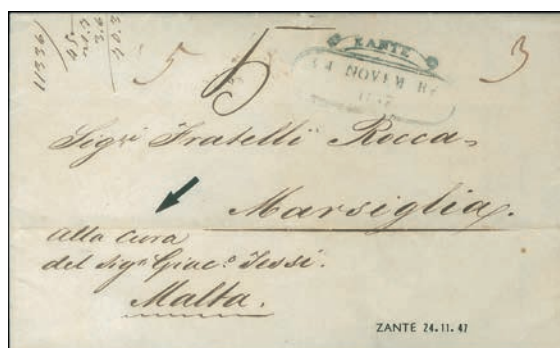 11336
45.
3.6
5 5 3
ZANTE
24 NOVEMBE
Sigri Fratelli Rocca
Marsiglia.
alla Cura
del Sigr Giac.o Tessi.
Malta.
ZANTE 24.11.47